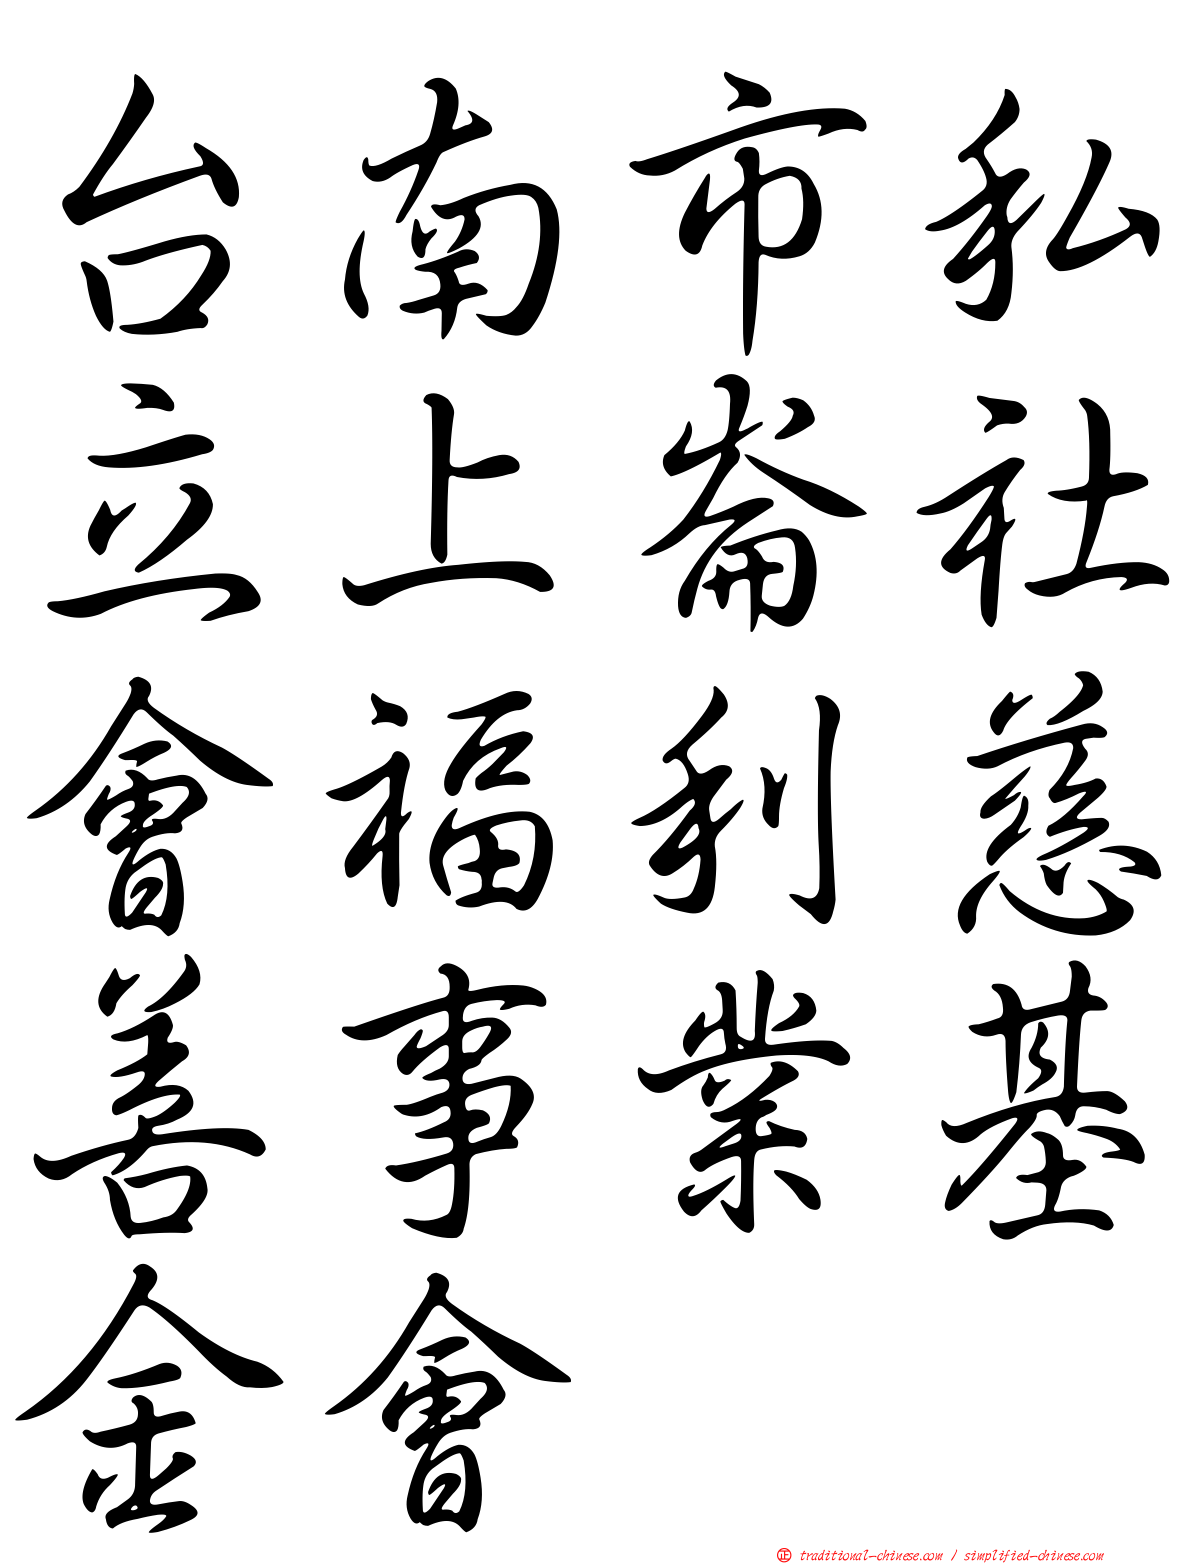 台南市私
立上崙社
會福利慈
善事業基
金會
㊣ traditional-chinese.com / simplified-chinese.com